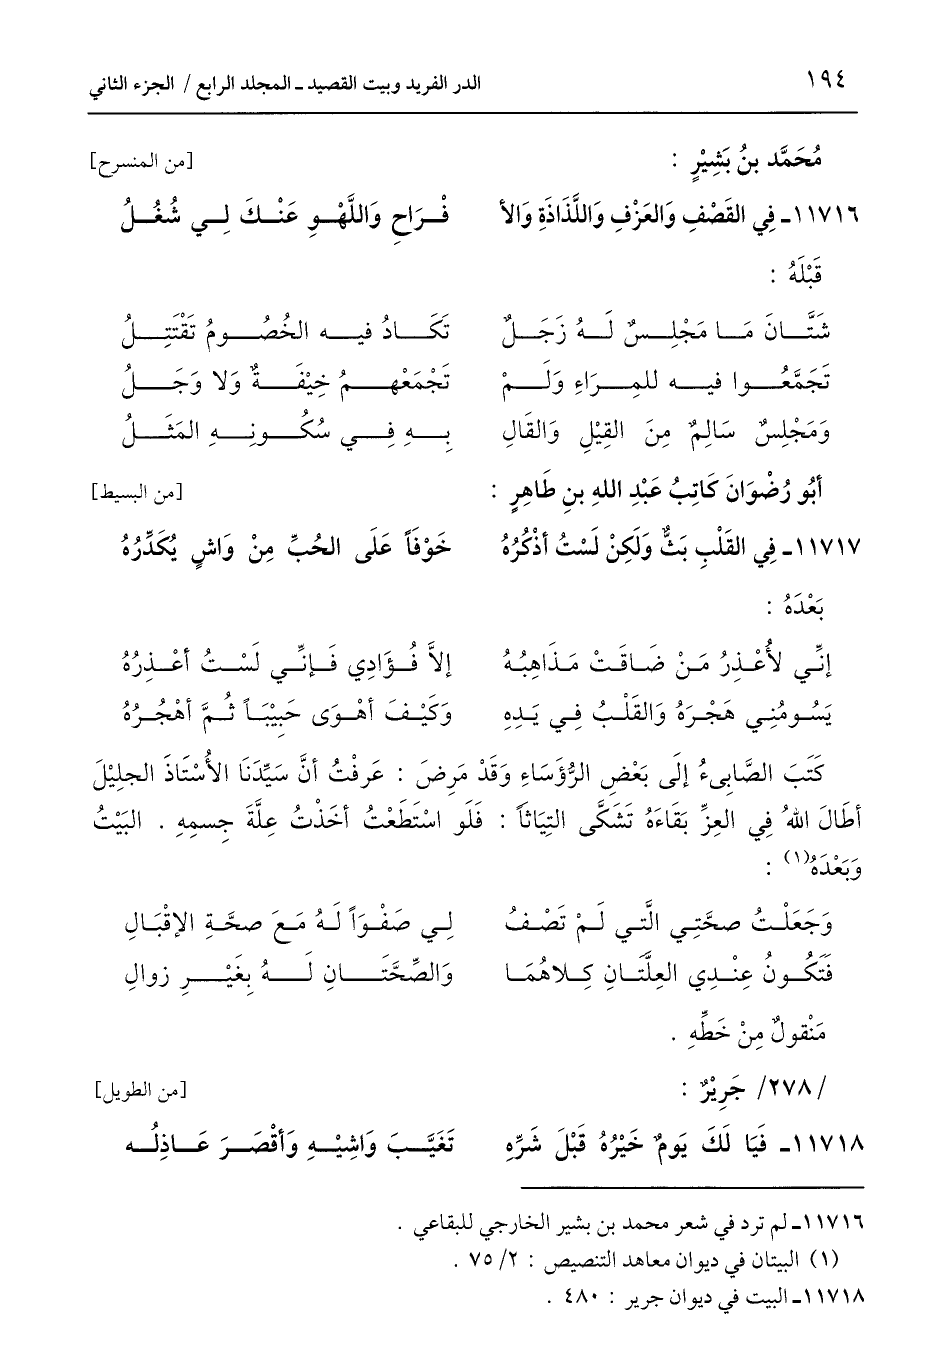 ١٩٤ الدر الفريد وبيت القصيد ـ المجلد الرابع / الجزء الثاني
مُحَمَّد بنُ بَشِيْرٍ : [من المنسرح]
١١٧١٦ـ فِي القَصْفِ وَالعَزْفِ وَاللَّذَاذَةِ وَالأ فْـرَاحِ وَاللَّهْـوِ عَنْـكَ لِـي شُغُـلُ
قَبْلَهُ :
شَتَّـانَ مَـا مَجْلِـسٌ لَـهُ زَجَـلٌ تَكَـادُ فيـه الخُصُـومُ تَقْتَتِـلُ
تَجَمَّعُـوا فيـه للمِـرَاءِ وَلَـمْ تَجْمَعْهـمُ خِيْفَـةٌ وَلا وَجَـلُ
وَمَجْلِسٌ سَالِمٌ مِنَ القِيْلِ وَالقَالِ بِـهِ فِـي سُكُـونِـهِ المَثَـلُ
أبُو رُضْوَانَ كَاتِبُ عَبْدِ اللهِ بنِ طَاهِرٍ : [من البسيط]
١١٧١٧ـ فِي القَلْبِ بَثٌّ وَلَكِنْ لَسْتُ أذْكُرُهُ خَوْفَاً عَلَى الحُبِّ مِنْ وَاشٍ يُكَدِّرُهُ
بَعْدَهُ :
إنِّي لأُعْذِرُ مَنْ ضَاقَتْ مَذَاهِبُهُ إلاَّ فُـؤَادِي فَـإنِّـي لَسْـتُ أعْـذِرُهُ
يَسُومُنِي هَجْرَهُ وَالقَلْبُ فِي يَدِهِ وَكَيْـفَ أهْـوَى حَبِيْبَـاً ثُـمَّ أهْجُـرُهُ
كَتَبَ الصَّابِىءُ إلَى بَعْضِ الرُّؤَسَاءِ وَقَدْ مَرِضَ : عَرفْتُ أنَّ سَيِّدَنَا الأُسْتَاذَ الجليْلَ
أطَالَ اللهُ فِي العِزِّ بَقَاءَهُ تَشَكَّى التِيَاثاً : فَلَو اسْتَطَعْتُ أخَذْتُ عِلَّةَ جِسمِهِ . البَيْتُ
وَبَعْدَهُ(١) :
وَجَعَلْتُ صحَّتِي الَّتِي لَمْ تَصْفُ لِـي صَفْـوَاً لَـهُ مَـعَ صحَّـةِ الإقْبَـالِ
فَتَكُـونُ عِنْـدِي العِلَّتَـانِ كِـلاهُمَـا وَالصِّحَّتَـانِ لَـهُ بِغَيْـرِ زوالِ
مَنْقولٌ مِنْ خَطِّهِ .
/٢٧٨/ جَرِيْرٌ : [من الطويل]
١١٧١٨ـ فَيَا لَكَ يَومٌ خَيْرُهُ قَبْلَ شَرِّهِ تَغَيَّـبَ وَاشِيْـهِ وَأقْصَـرَ عَـاذِلُـه
١١٧١٦ـ لم ترد في شعر محمد بن بشير الخارجي للبقاعي .
(١) البيتان في ديوان معاهد التنصيص : ٢/ ٧٥ .
١١٧١٨ـ البيت في ديوان جرير : ٤٨٠ .